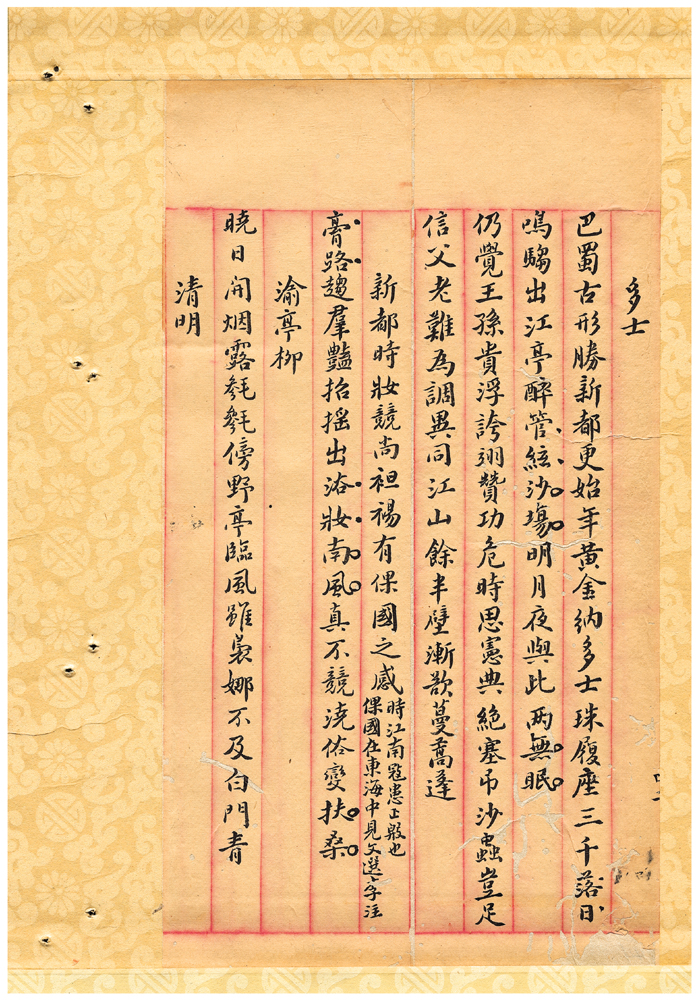 多士
巴蜀古形勝新都更始年黃金納多士珠履座三千落日
鳴騶出江亭醉管絃沙場明月夜與此兩無眠
仍覺王孫貴浮誇翊贊功危時思憲典絕塞弔沙蟲豈足
信父老難為調異同江山餘半壁漸欲蔓蒿蓬
新都時妝競尚袒裼有倮國之感
時江南寇患正殷也
倮國在東海中見文選注
膏路趨羣豔招搖出浴妝南風真不競澆俗變扶桑
渝亭柳
曉日開烟露毿毿傍野亭臨風雖裊娜不及白門青
清明